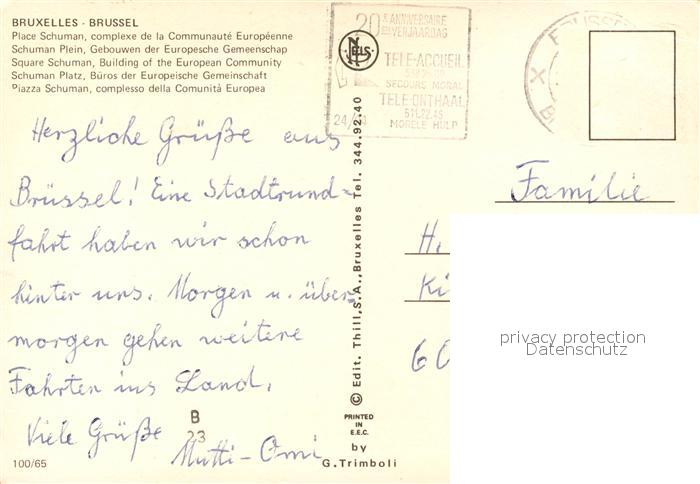 BRUXELLES - BRUSSEL
Place Schuman, complexe de la Communauté Européenne
Schuman Plein, Gebouwen der Europesche Gemeenschap
Square Schuman, Building of the European Community
Schuman Platz, Büros der Europeische Gemeinschaft
Piazza Schuman, complesso della Comunità Europea
Herzliche Grüße aus
Brüssel! Eine Stadtrund=
fahrt haben wir schon
hinter uns. Morgen u. über=
morgen gehen weitere
Fahrten ins Land.
Viele Grüße
Mutti-Omi
B
23
100/65
NELS
© Edit. Thill, S.A., Bruxelles Tel. 344.92.40
PRINTED
IN
E.E.C.
by
G. Trimboli
20 ANNIVERSAIRE
VERJAARDAG
TELE-ACCUEIL
SECOURS MORAL
TELE-ONTHAAL
511.22.45
MORELE HULP
24/24
Familie
H.
Ki
60
privacy protection
Datenschutz